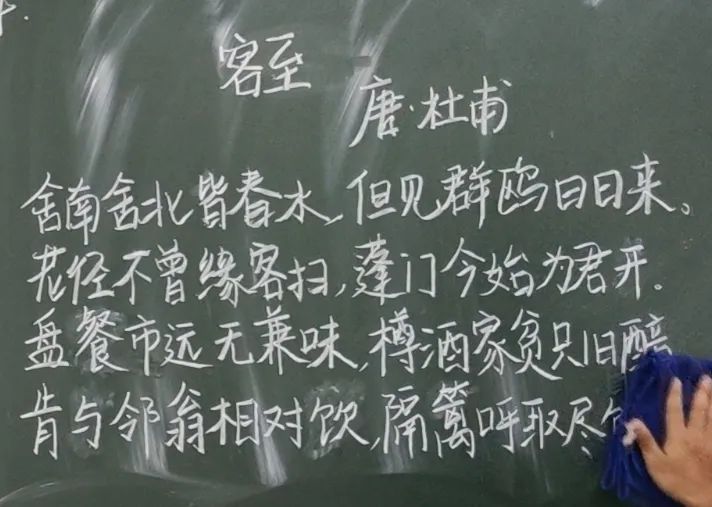 客至
唐·杜甫
舍南舍北皆春水,但见群鸥日日来。
花径不曾缘客扫,蓬门今始为君开.
盘餐市远无兼味,樽酒家贫只旧醅
肯与邻翁相对饮,隔篱呼取尽